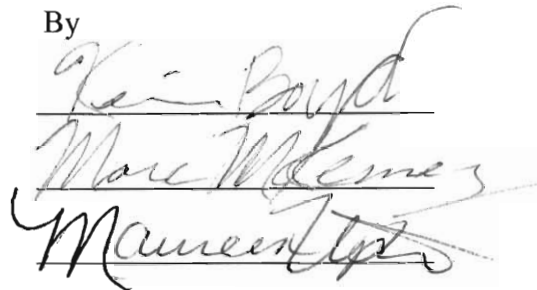 By
Kevin Boyd
Marc McKenney
Maureen